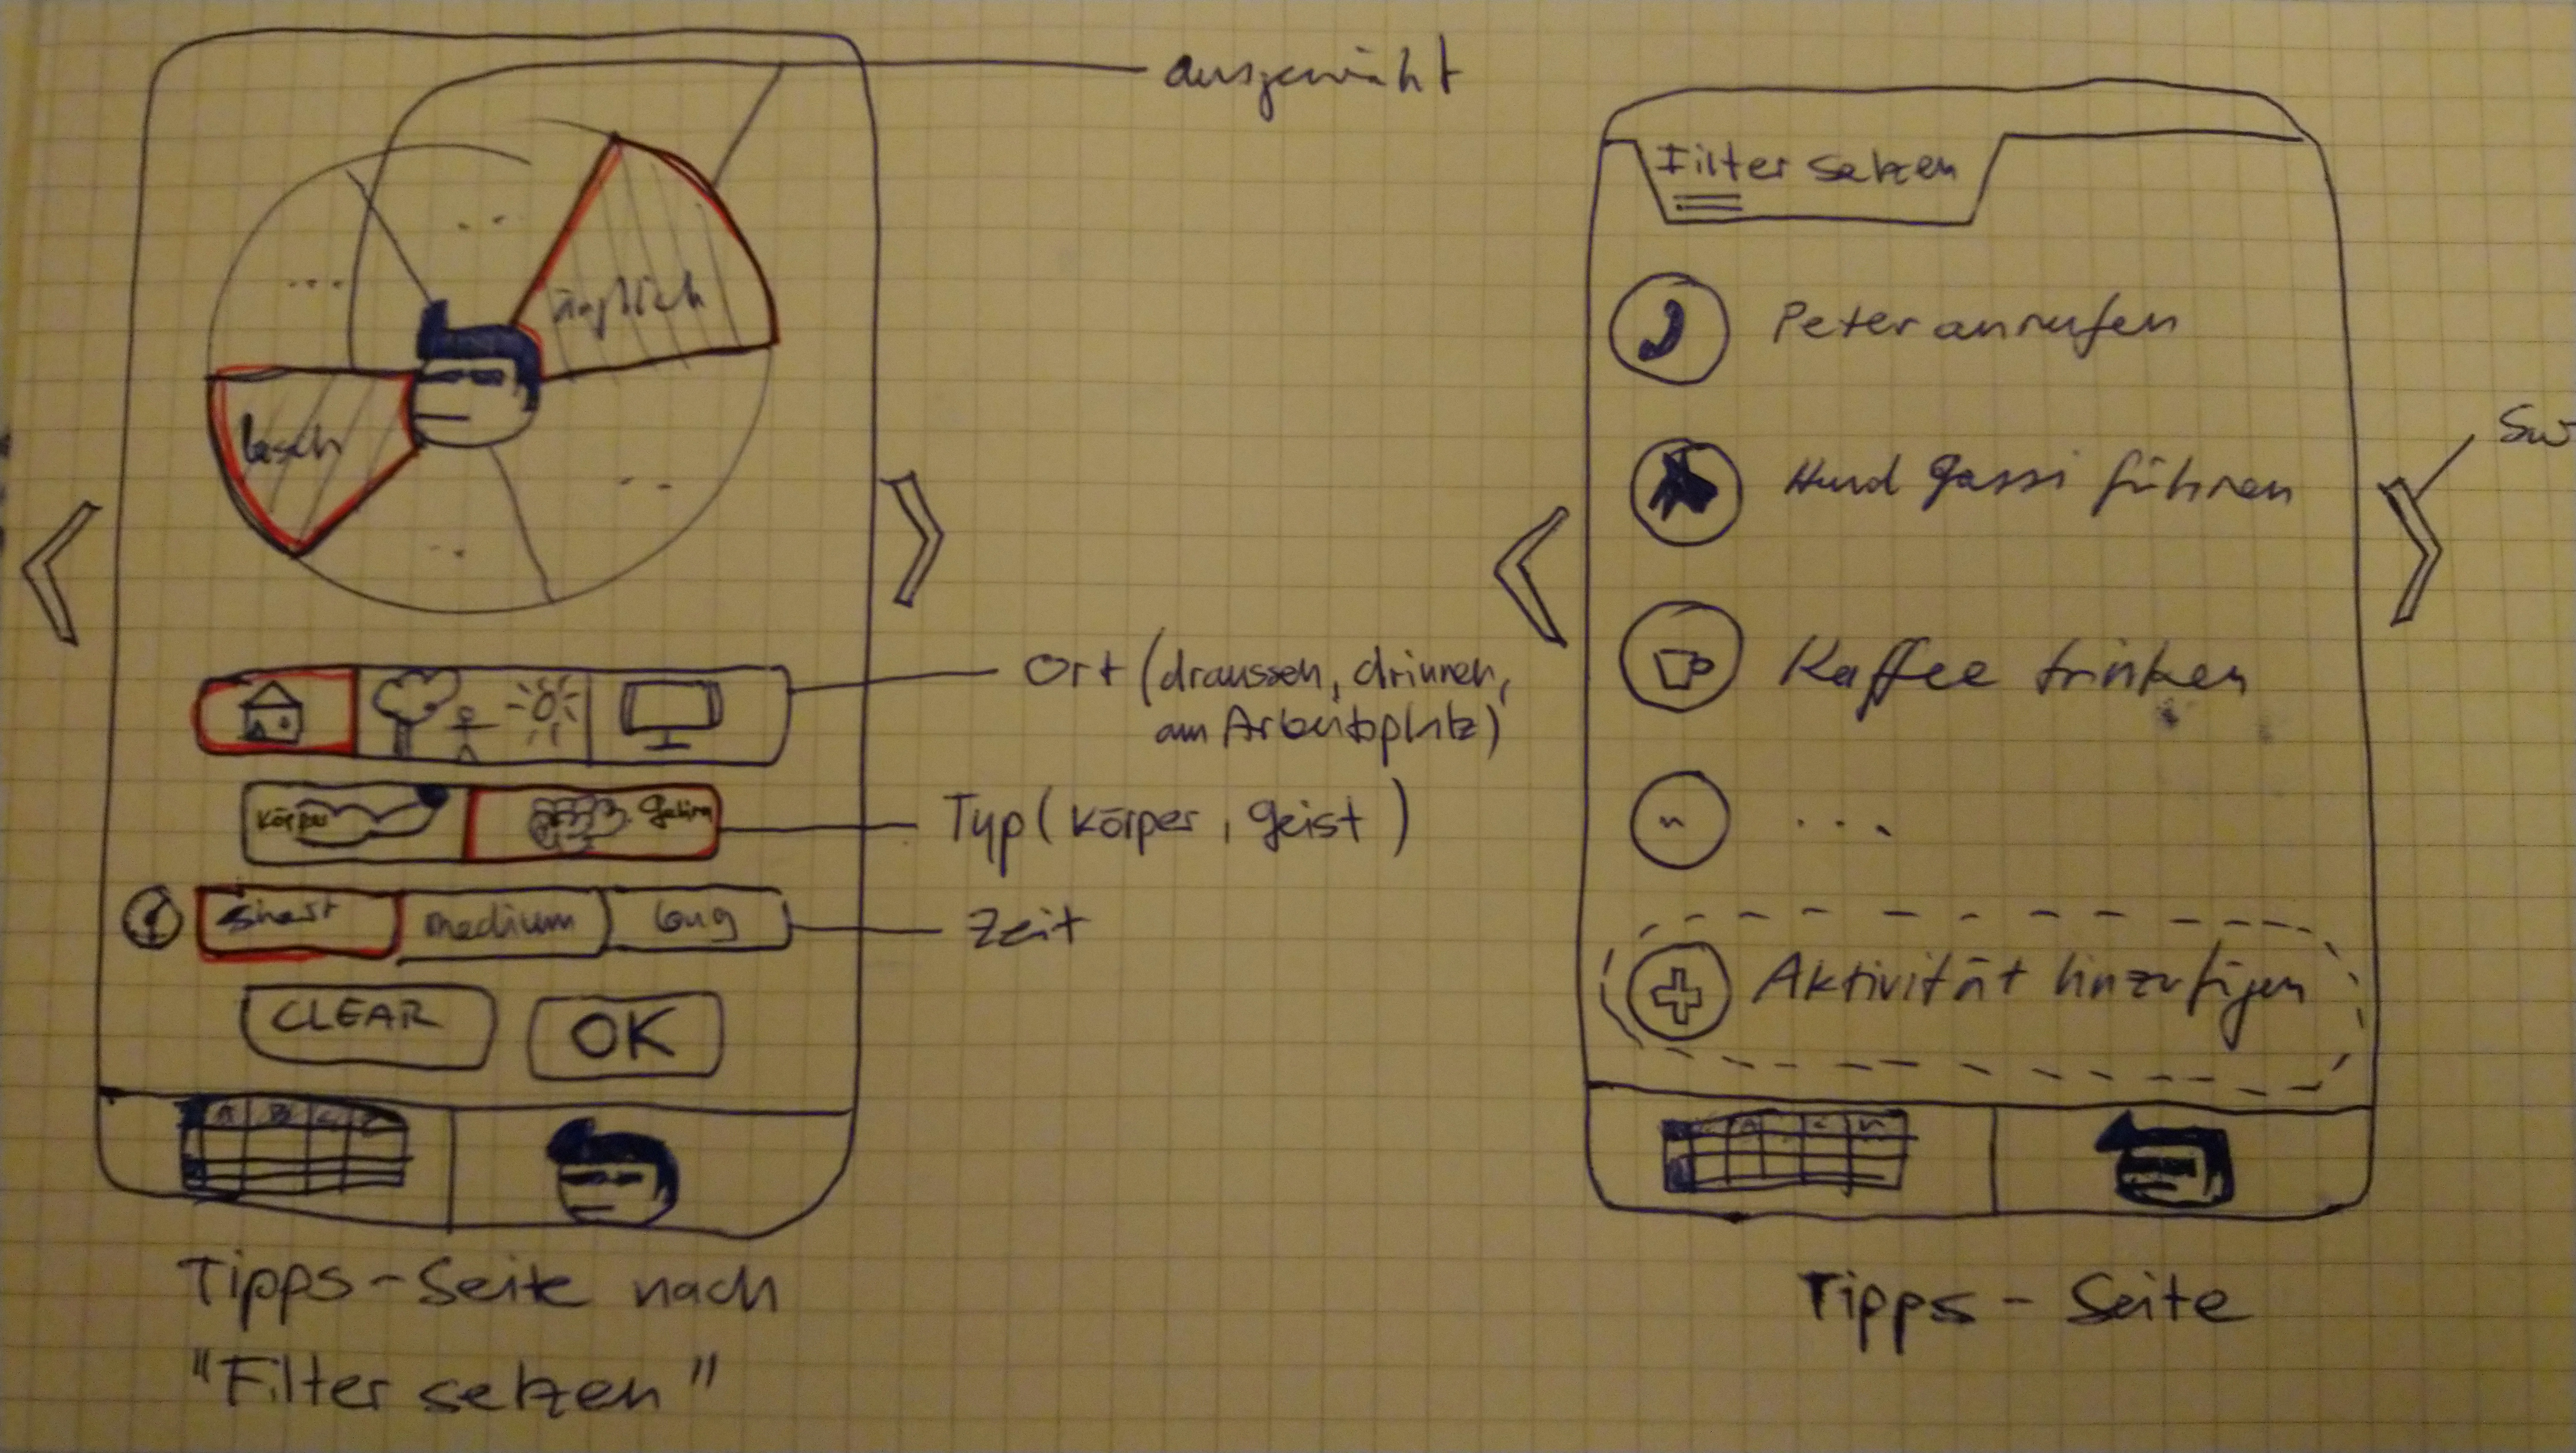 ausgewählt
...
...
...
...
Ort (draussen, drinnen,
am Arbeitsplatz)
Körper
Gehirn
Typ (Körper, Geist)
short
medium
long
Zeit
CLEAR
OK
Tipps-Seite nach
"Filter setzen"
Filter setzen
Peter anrufen
Hund Gassi führen
Kaffee trinken
...
Aktivität hinzufügen
Tipps - Seite